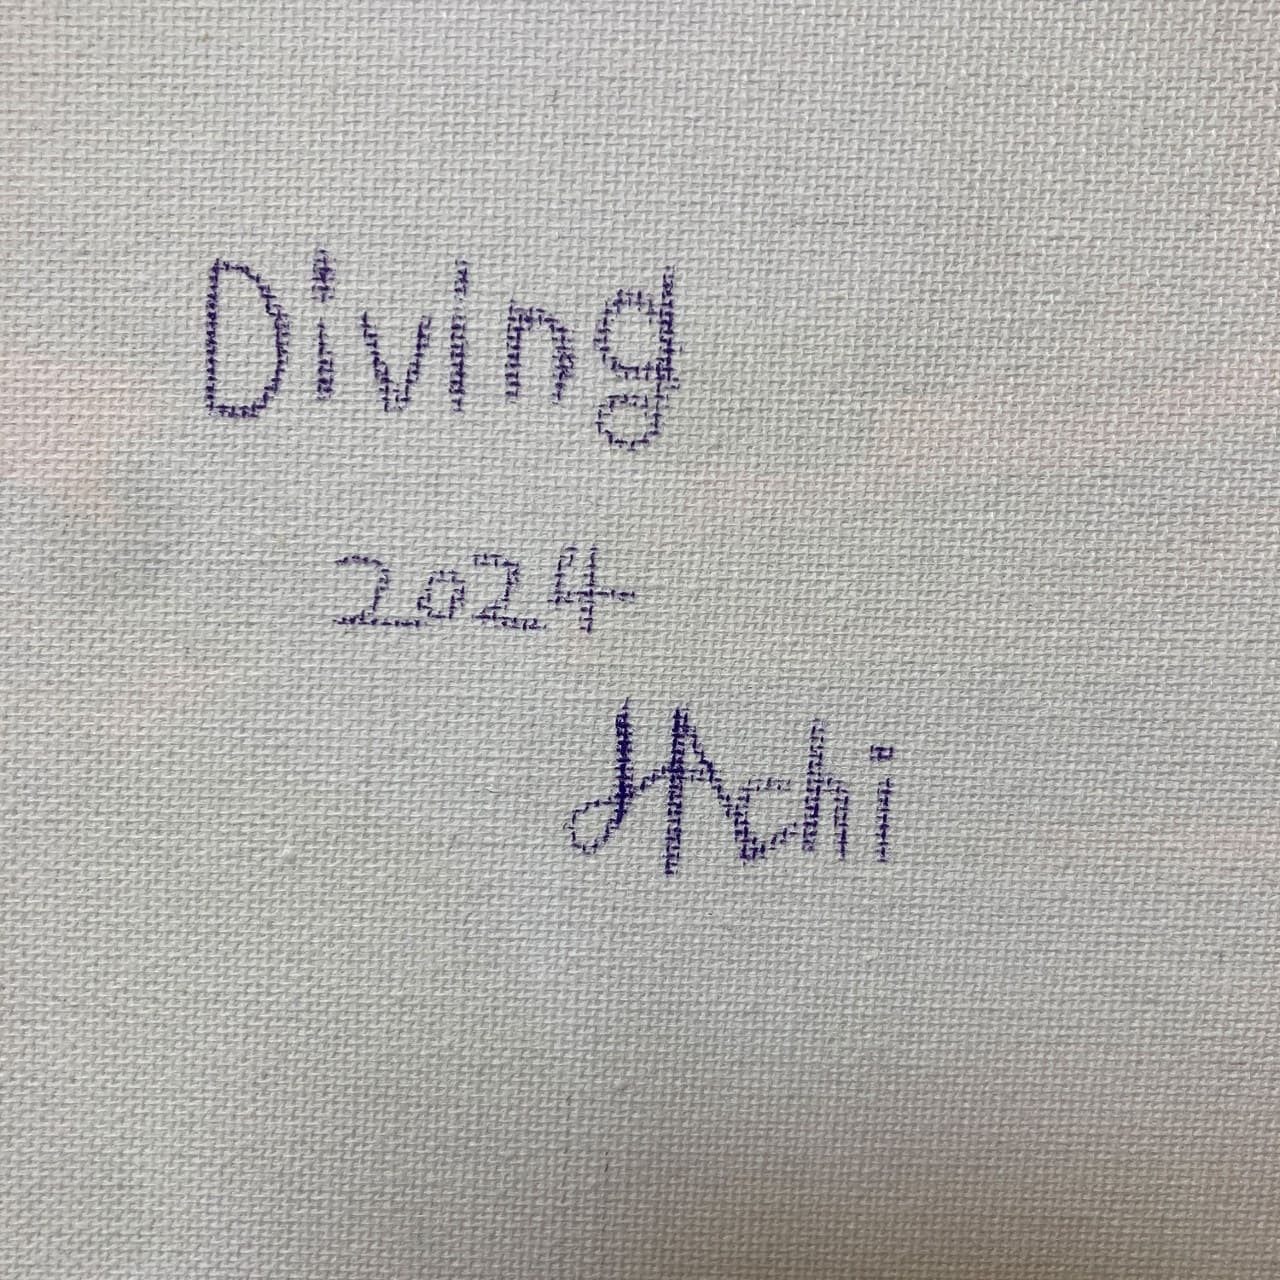 Diving
2024
HAchi